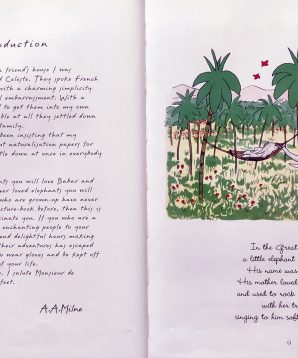 oduction
a friend's house I was
d Celeste. They spoke French
with a charming simplicity
l embarrassment. With a
t to get them into my own
ble at all they settled down
family.
been insisting that my
ut naturalisation papers for
ttle down at once in everybody
ts you will love Babar and
ver loved elephants you will
who are grown-up have never
icture-book before, then this is
cinate you. If you are a
enchanting people to your
nd delightful hours making
their adventures has escaped
to wear gloves and be kept off
of your life.
e. I salute Monsieur de
feet.
A.A.Milne
In the Great
a little elephant
His name was
His mother loved
and used to rock
with her tr
singing to him soft
9